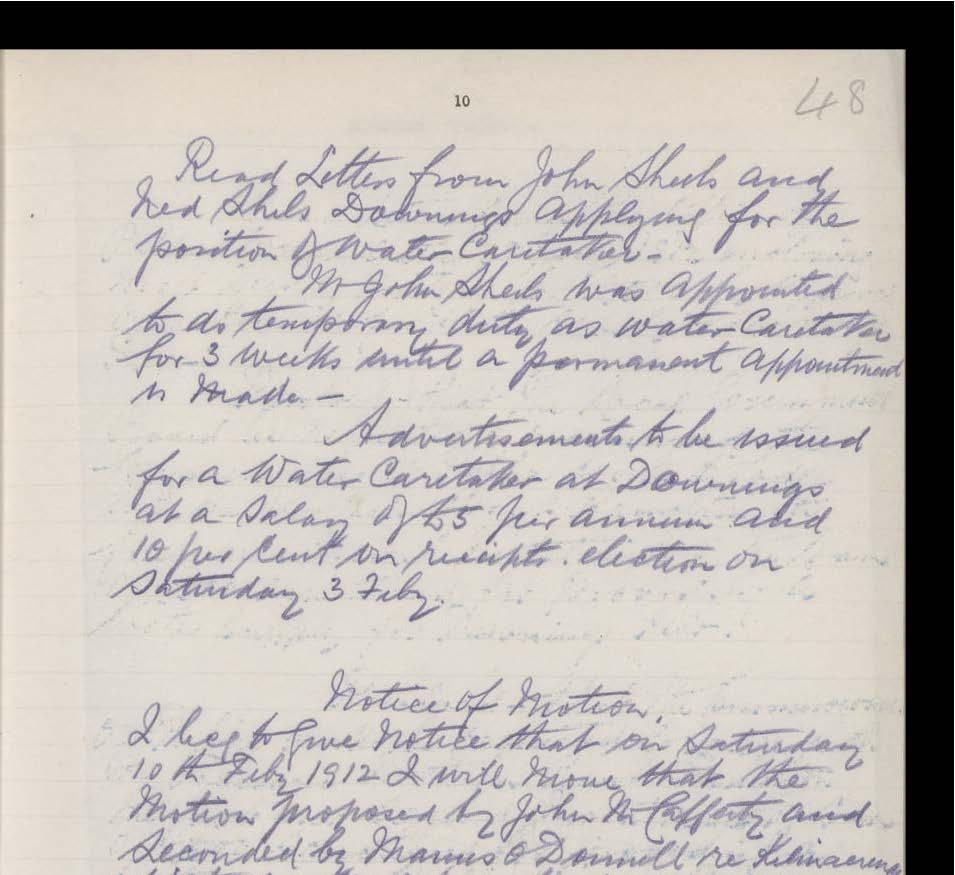 10
48
Read Letters from John Sheils and
Ned Shils Downings applying for the
position of Water Caretaker -
Mr John Sheils was appointed
to do temporary duty as water Caretaker
for 3 weeks until a permanent appointment
is made. -
Advertisements to be issued
for a Water Caretaker at Downings
at a Salary of £5 per annum and
10 per Cent on receipts. election on
Saturday 3 Feby.
Notice of Motion.
I beg to give Notice that on Saturday
10th Feby 1912 I will move that the
Motion proposed by John McCafferty and
Seconded by Manus O Donnell re